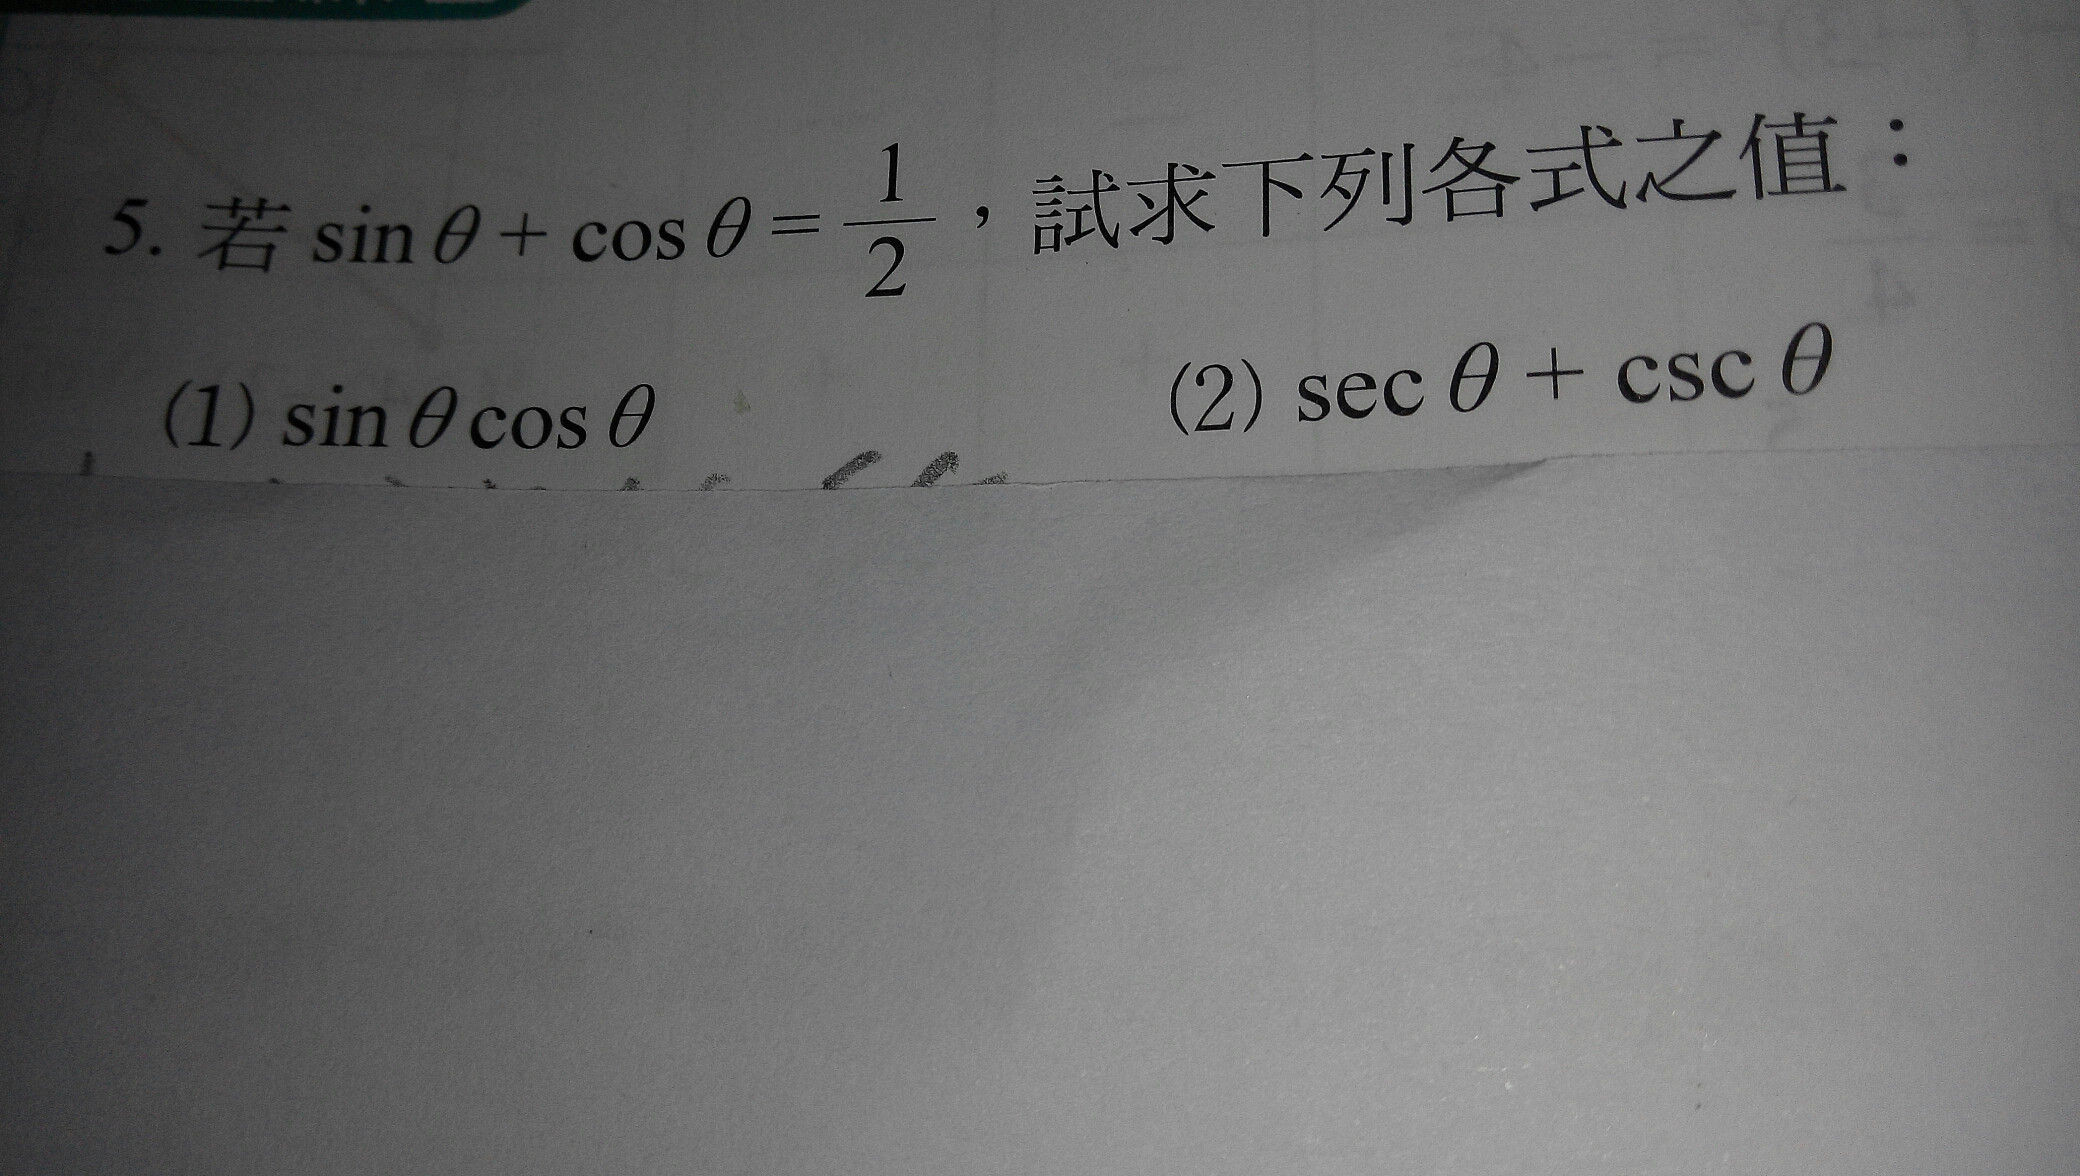 5. 若 sin θ + cos θ = 1/2，試求下列各式之值：
(1) sin θ cos θ (2) sec θ + csc θ